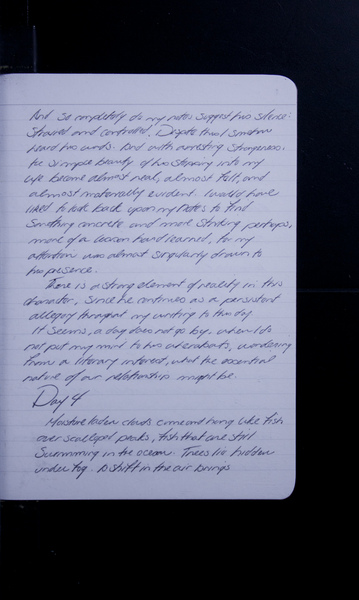 And so completely do my notes suggest his silence:
Starved and controlled. Despite this I somehow
heard his words. And with arresting strangeness.
the simple beauty of his stepping into my
life became almost real, almost full, and
almost materially evident. I would have
liked to look back upon my notes to find
something concrete and more striking perhaps,
more of a lesson hard learned, for my
attention was almost singularly drawn to
his presence.
There is a strong element of reality in this
character, since he continues as a persistent
allegory throughout my writing to this day
It seems, a day does not go by, when I do
not put my mind to his whereabouts, wondering
from a literary interest, what the essential
nature of our relationship might be.
Day 4
Moisture laden clouds come and hang like fish
over scalloped peaks, fish that are still
Swimming in the ocean. Trees lie hidden
under fog. A shift in the air brings